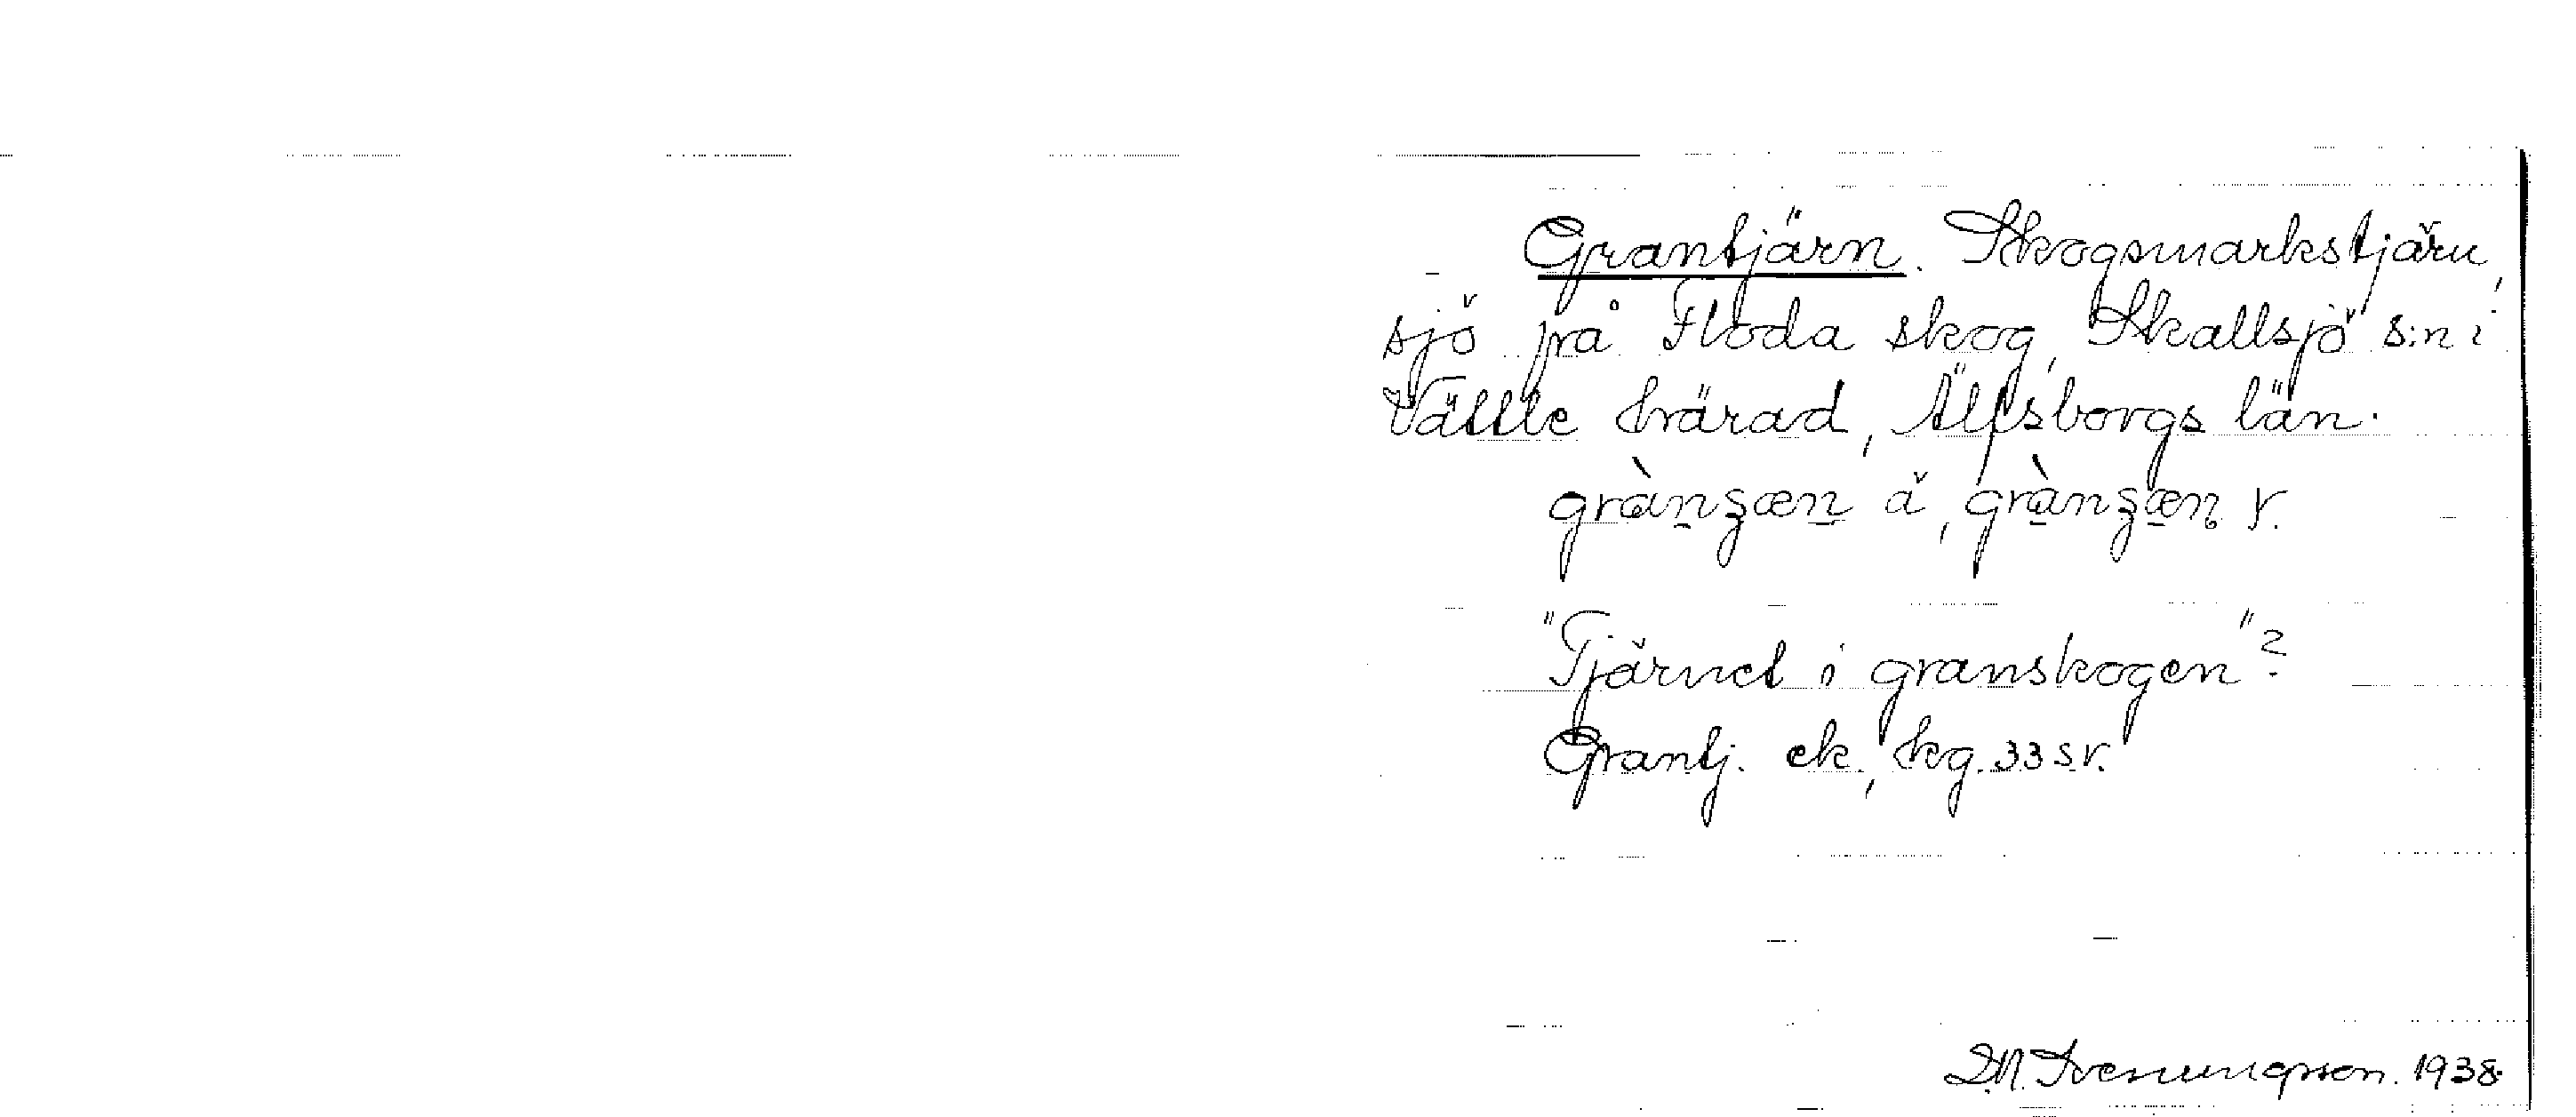 Grantjärn. Skogsmarkstjärn,
sjö på Floda skog, Skallsjö s:n i
Vättle härad, Älfsborgs län.
grànʒæn ä, grànʒæn v.
"Tjärnet i granskogen"?
Grantj. ek., kg. 33 sv.
D.N. 1938.